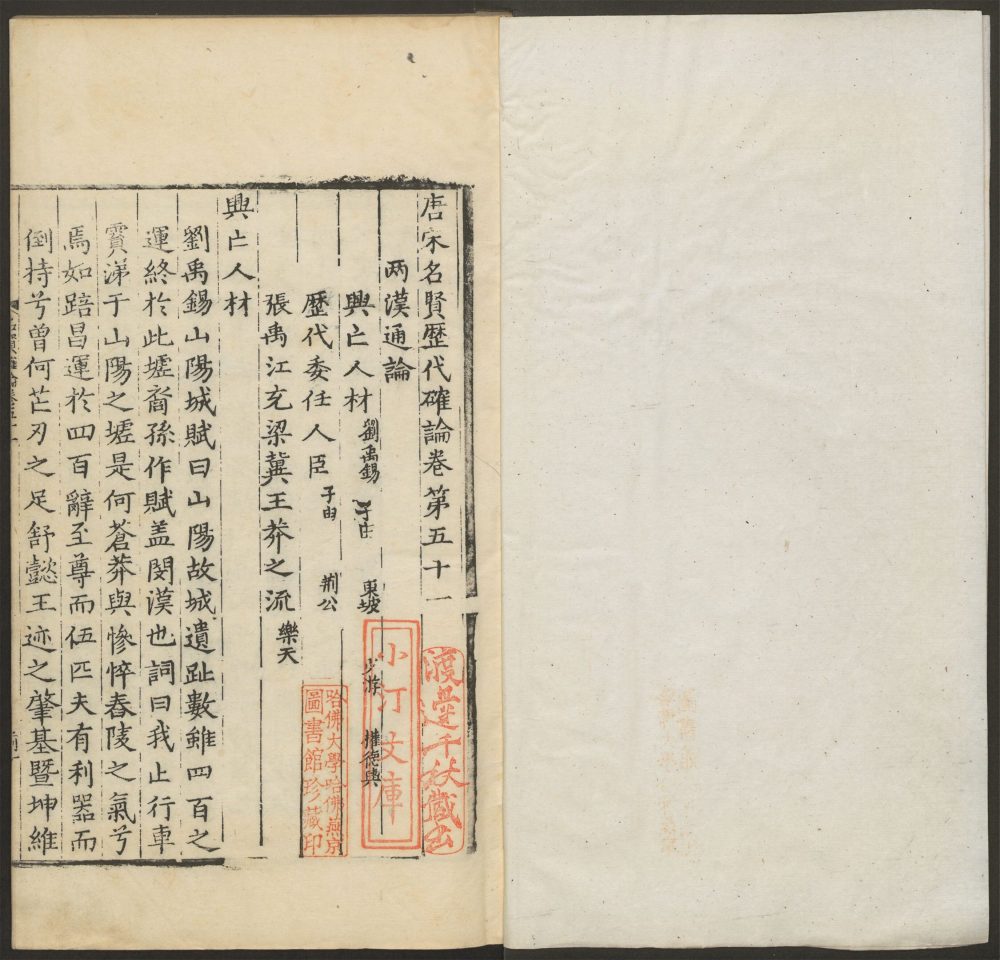 唐宋名賢歷代確論卷第五十一
兩漢通論
興亡人材 劉禹錫 子由 東坡 少游 權德輿
歷代委任人臣 子由 荊公
張禹江充梁冀王莽之流 樂天
興亡人材
劉禹錫山陽城賦曰山陽故城遺趾數雉四百之
運終於此墟裔孫作賦盖閔漢也詞曰我止行車
實涕于山陽之墟是何蒼莽與慘悴舂陵之氣兮
焉如踣昌運於四百辭至尊而伍匹夫有利器而
倒持兮曽何芒刃之足舒懿王迹之肇基暨坤維
渡邊千秋藏書
小汀文庫
哈佛大學哈佛燕京
圖書館珍藏印